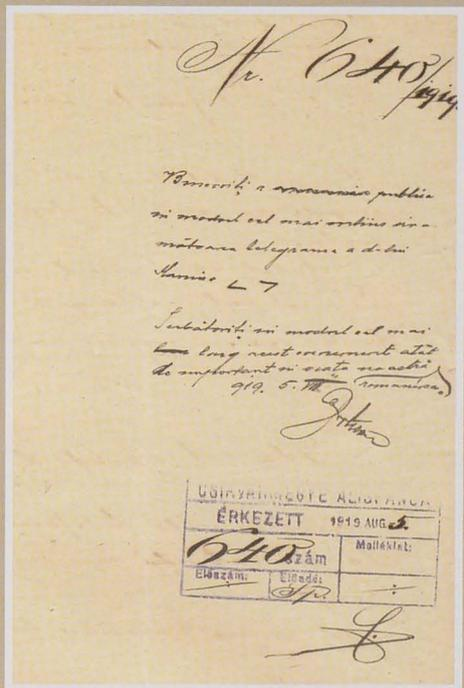 Nr. 640/1919.
Binevoiți a publica
in modul cel mai extins
mătoarea telegrama a d-lui
Maniu
Serbătoriți in modul cel mai
larg acest eveniment atât
de important in viața noastră
919. 5. VIII românésca
CSIKVÁRMEGYE ALISPÁNJA
ÉRKEZETT 1919 AUG 5.
640 szám Melléklet:
Előszám: Előadó: